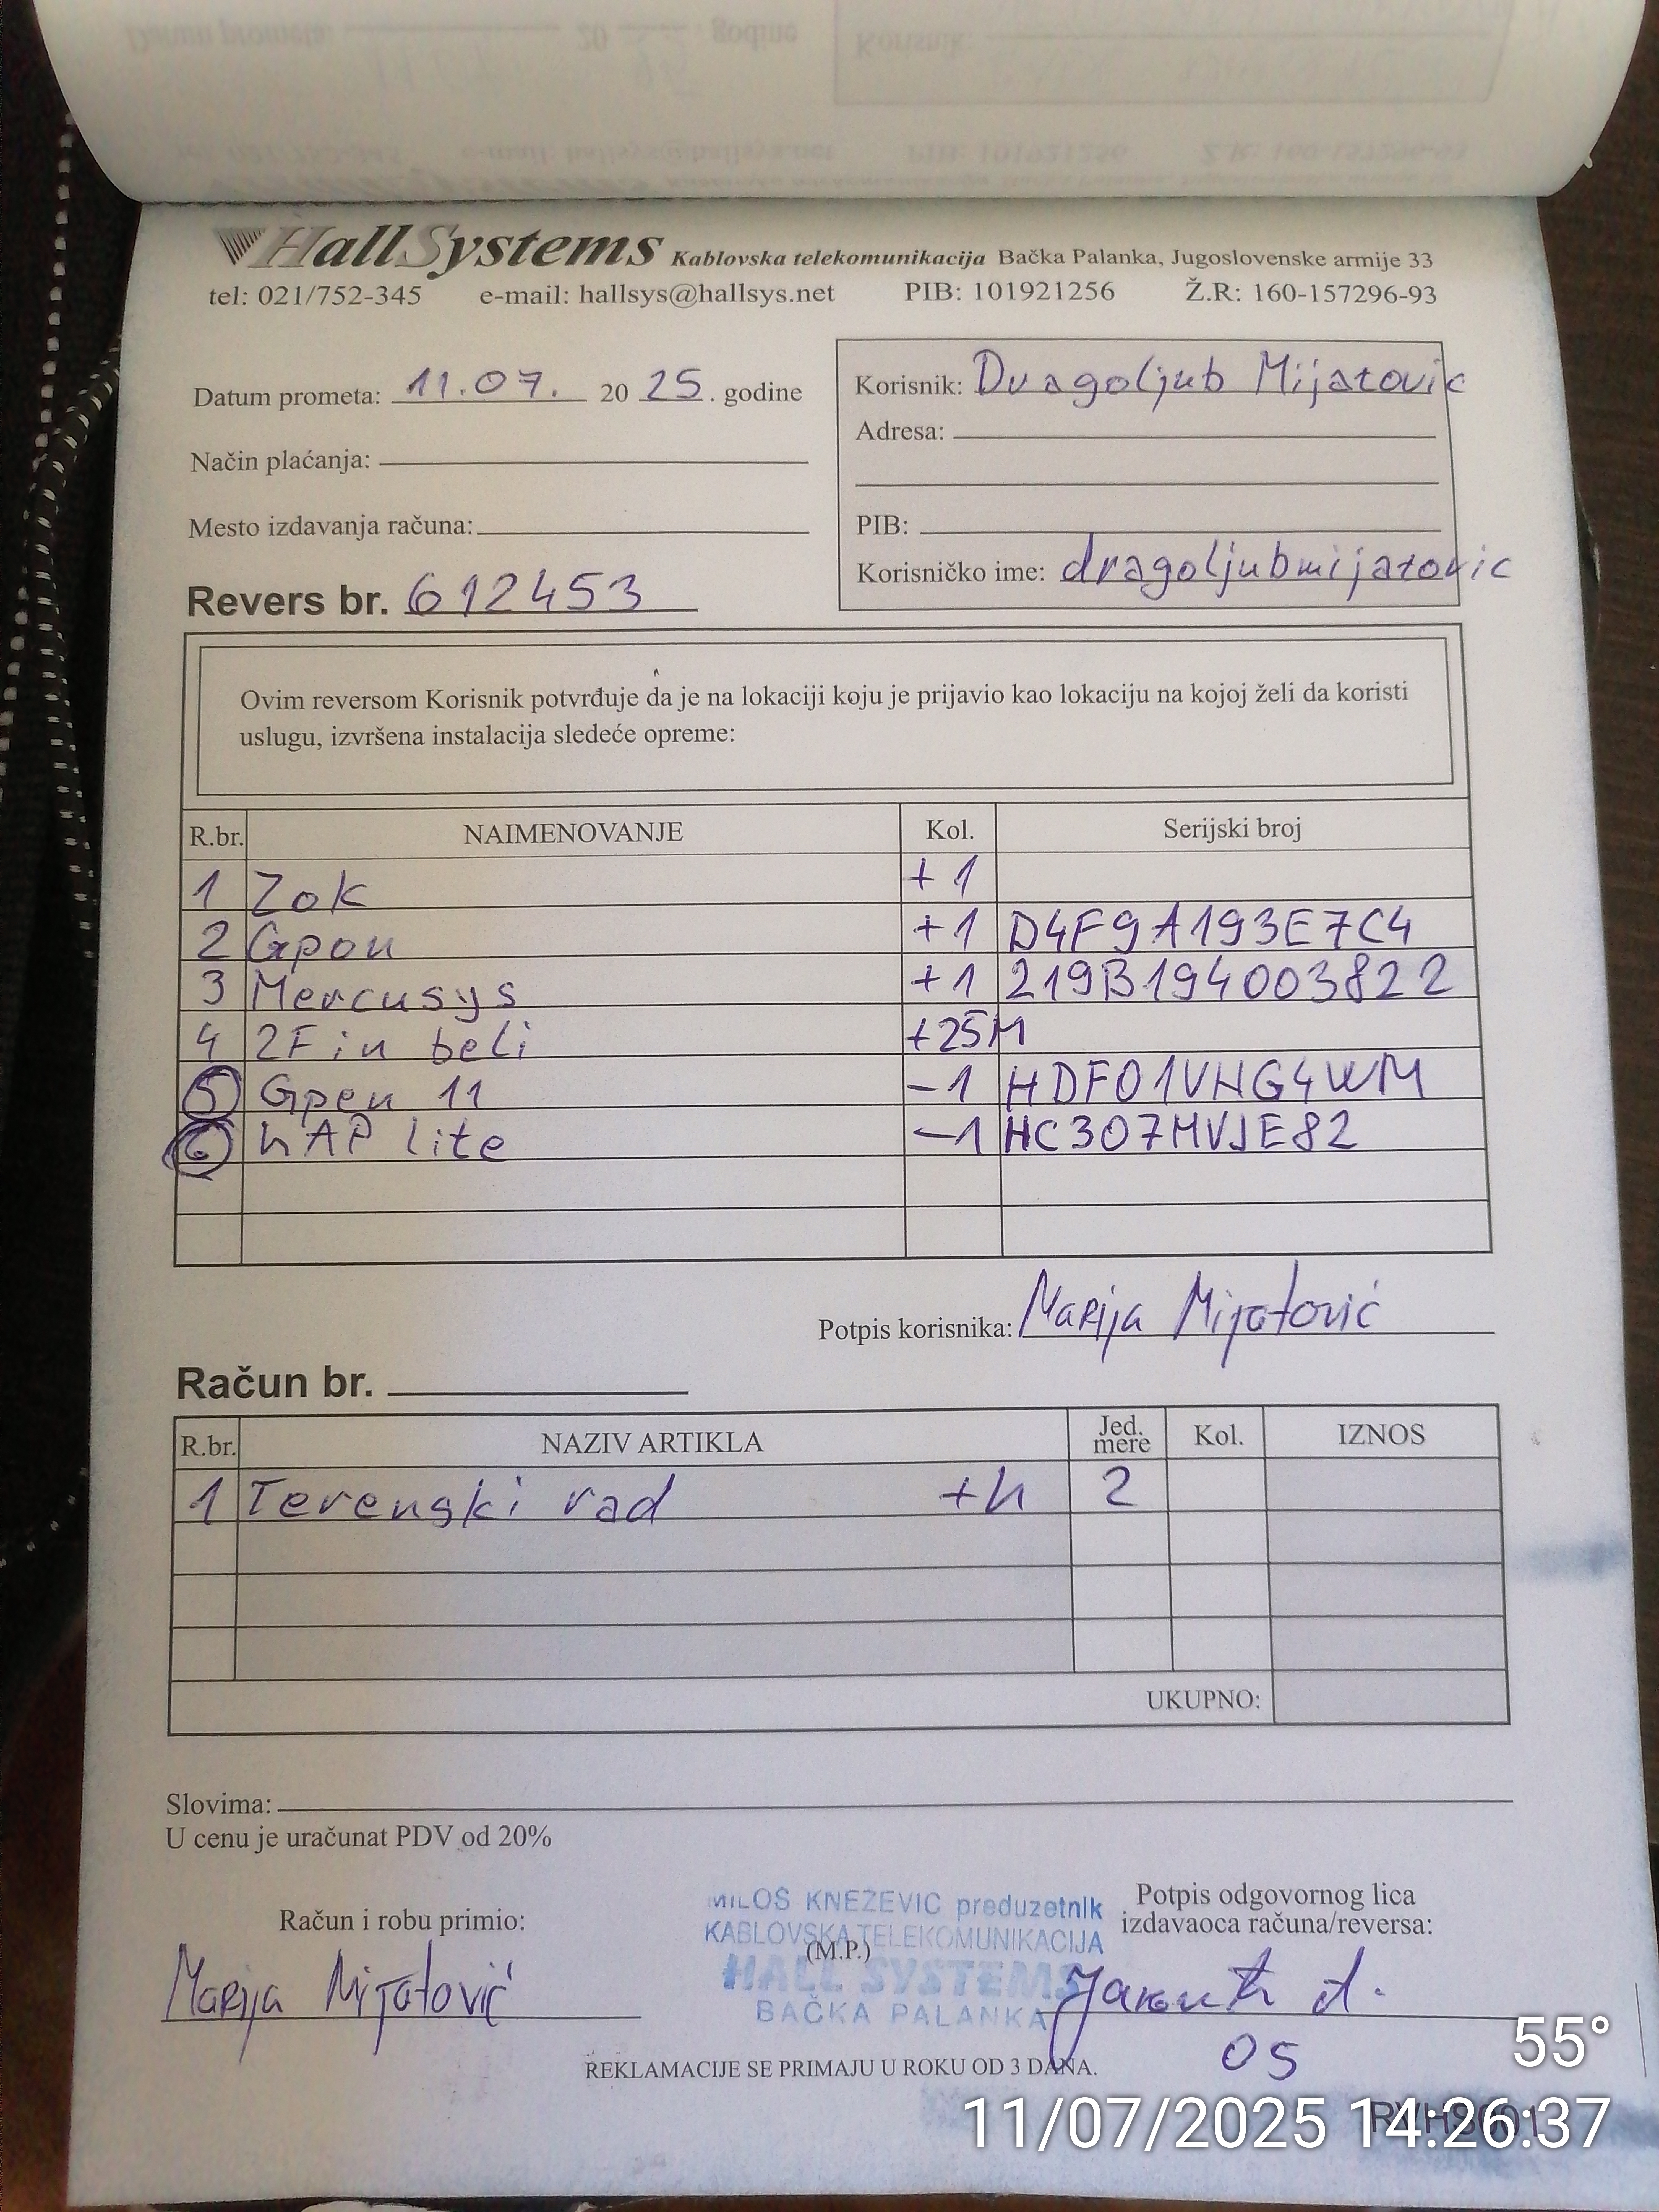 HallSystems Kablovska telekomunikacija Bačka Palanka, Jugoslovenske armije 33
tel: 021/752-345 e-mail: hallsys@hallsys.net PIB: 101921256 Ž.R: 160-157296-93
Datum prometa: 11.07. 20 25. godine
Način plaćanja:
Mesto izdavanja računa:
Revers br. 612453
Korisnik: Dragoljub Mijatovic
Adresa:
PIB:
Korisničko ime: dragoljubmijatovic
Ovim reversom Korisnik potvrđuje da je na lokaciji koju je prijavio kao lokaciju na kojoj želi da koristi
uslugu, izvršena instalacija sledeće opreme:
R.br. NAIMENOVANJE Kol. Serijski broj
1 Zok +1
2 Gpon +1 D4F9A193E7C4
3 Mercusys +1 219B194003822
4 2Fin beli +25M
5 Gpen 11 -1 HDF01VHG4WM
6 hAP lite -1 HC307MVJE82
Potpis korisnika: Marija Mijatović
Račun br.
R.br. NAZIV ARTIKLA Jed. mere Kol. IZNOS
1 Terenski rad +h 2
UKUPNO:
Slovima:
U cenu je uračunat PDV od 20%
Račun i robu primio:
Marija Mijatović
MILOŠ KNEŽEVIĆ preduzetnik
KABLOVSKA TELEKOMUNIKACIJA
(M.P.)
HALL SYSTEMS
BAČKA PALANKA
Potpis odgovornog lica
izdavaoca računa/reversa:
05
REKLAMACIJE SE PRIMAJU U ROKU OD 3 DANA.
55°
11/07/2025 14:26:37